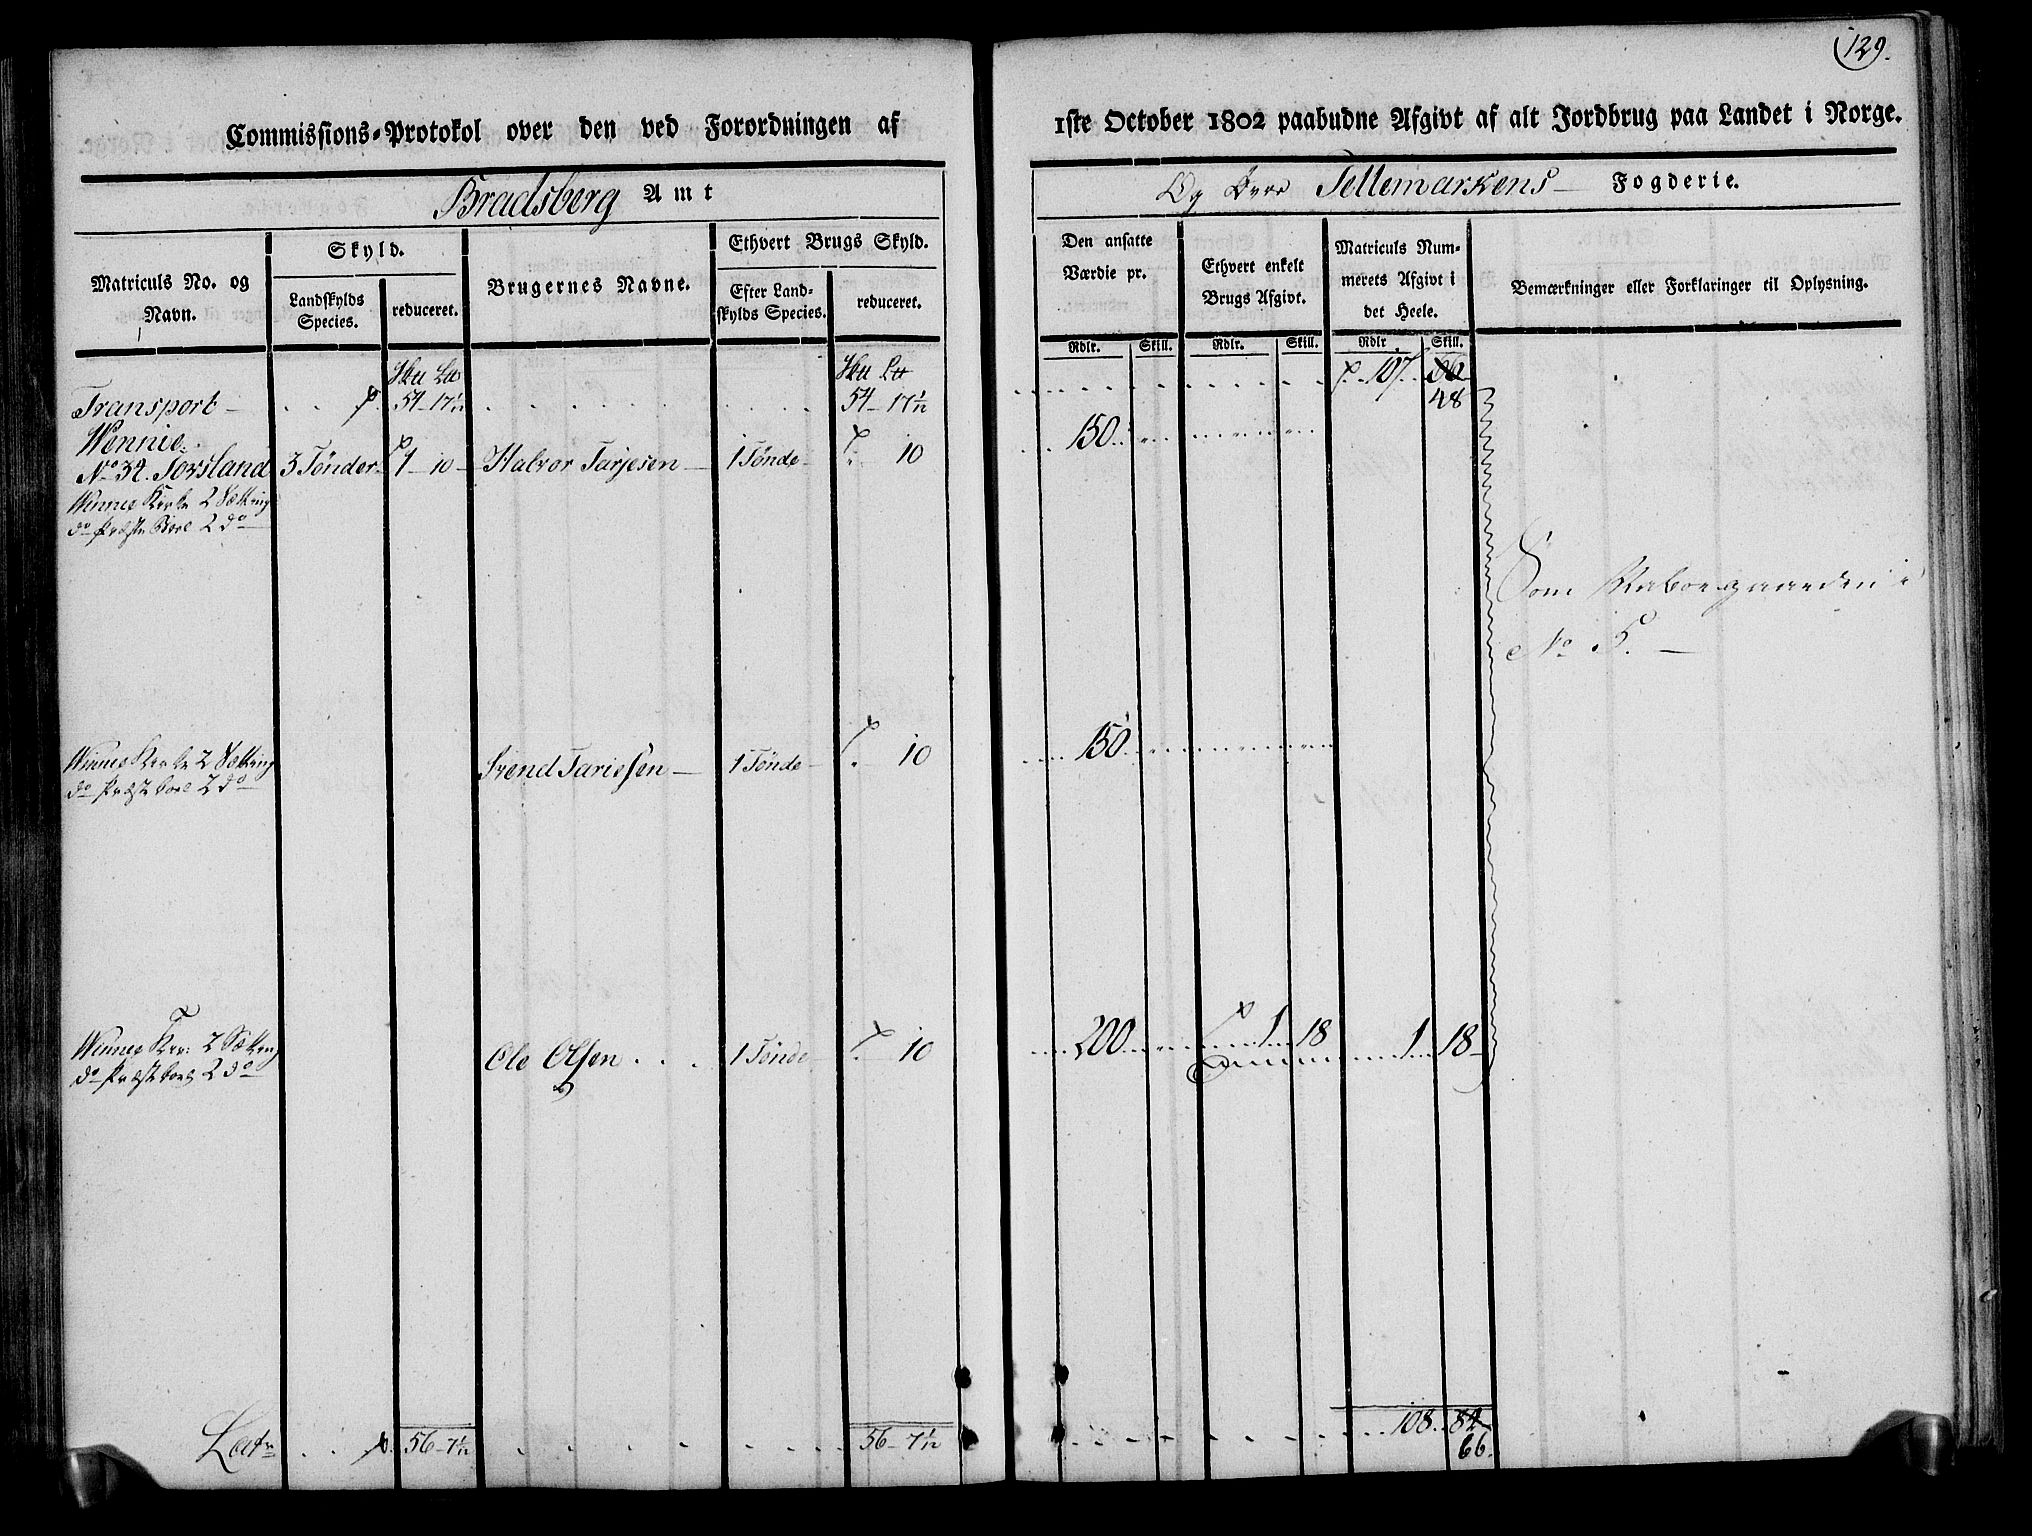 129.
Commissions-Protokol over den ved Forordningen af
1ste October 1802 paabudne Afgivt af alt Jordbrug paa Landet i Norge.
Bradsberg Amt
Og Øvre Tellemarkens Fogderie.
Matriculs No. og Navn.
Skyld.
Landskylds Species.
reduceret.
Brugernes Navne.
Ethvert Brugs Skyld.
Efter Land-
skylds Species.
reduceret.
Den ansatte
Værdie pr.
Ethvert enkelt
Brugs Afgivt.
Matriculs Num-
merets Afgivt i
det Heele.
Bemærkninger eller Forklaringer til Oplysning.
Rdlr. Skill. Rdlr. Skill. Rdlr Skill.
Transport 54 - 17½ 54 - 17½ 107 66
48
Wennie:
No 34. Torsland 3 Tønder 1 - 10 Halvor Tarjesen 1 Tønde 10 150
Winnie Kirke 2 Sætting
do Præste Boel 2 do
Som Naboegaarden i
No 5.
Winnie Kirke 2 Sætting
do Præste boel 2 do
Svend Tariesen 1 Tønde 10 150
Winnie Kir: 2 Sætting
do Præste boel 2 do
Ole Olsen 1 Tønde 10 200 1 18 1 18
Latr 56 - 7½ 56 - 7½ 108 84
66.